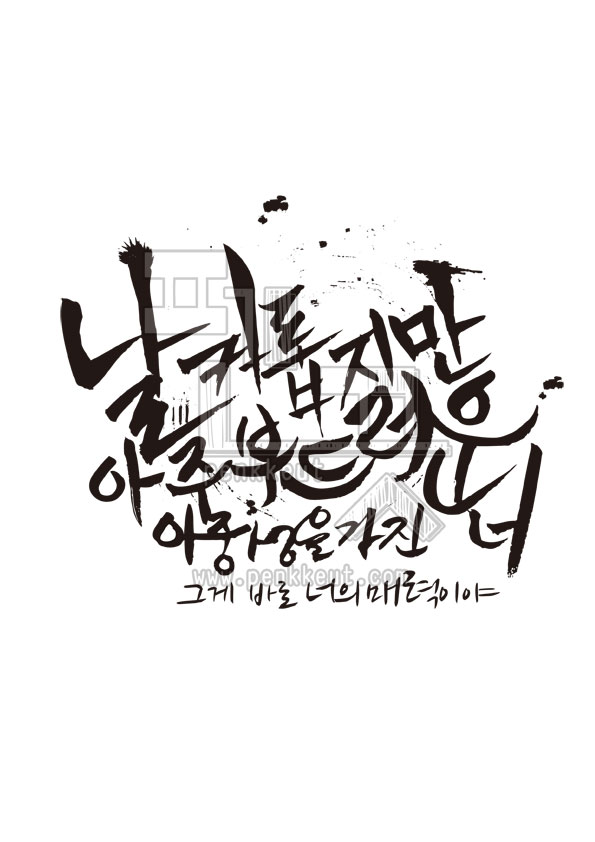 날카롭지만
아주 부드러운 너
이중성을 가진
그게 바로 너의 매력이야
penkkeut
www.penkkeut.com